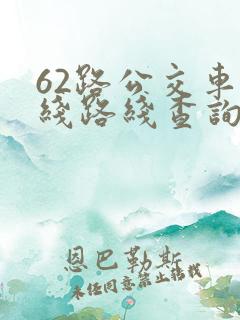 62路公交车
线路线查詢
恩巴勒斯
未经同意禁止转载